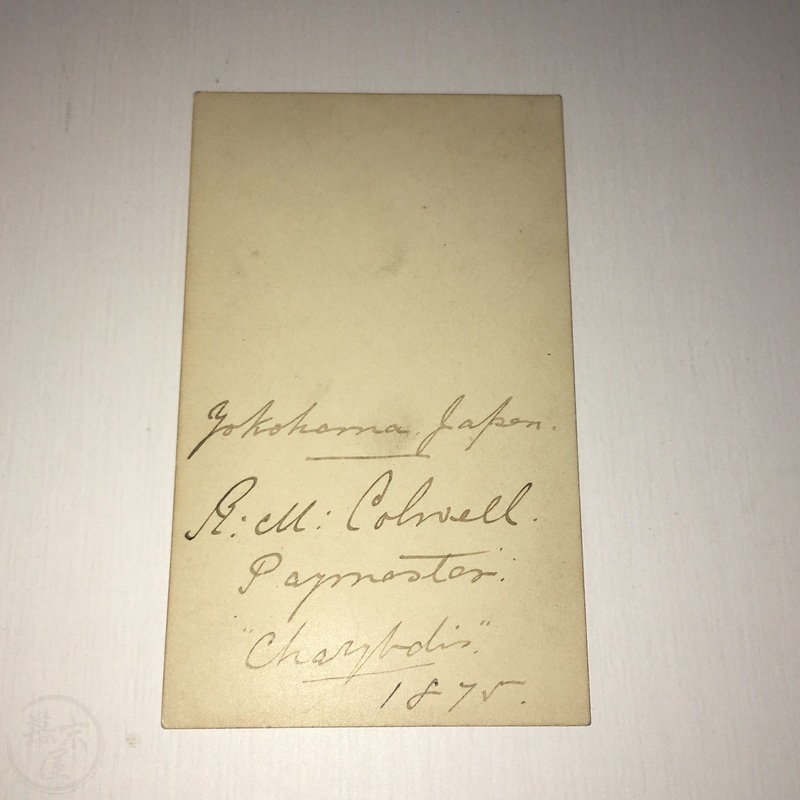 Yokohama. Japan.
R. M: Colwell.
Paymaster.
"Charybdis".
1875.
幕末屋